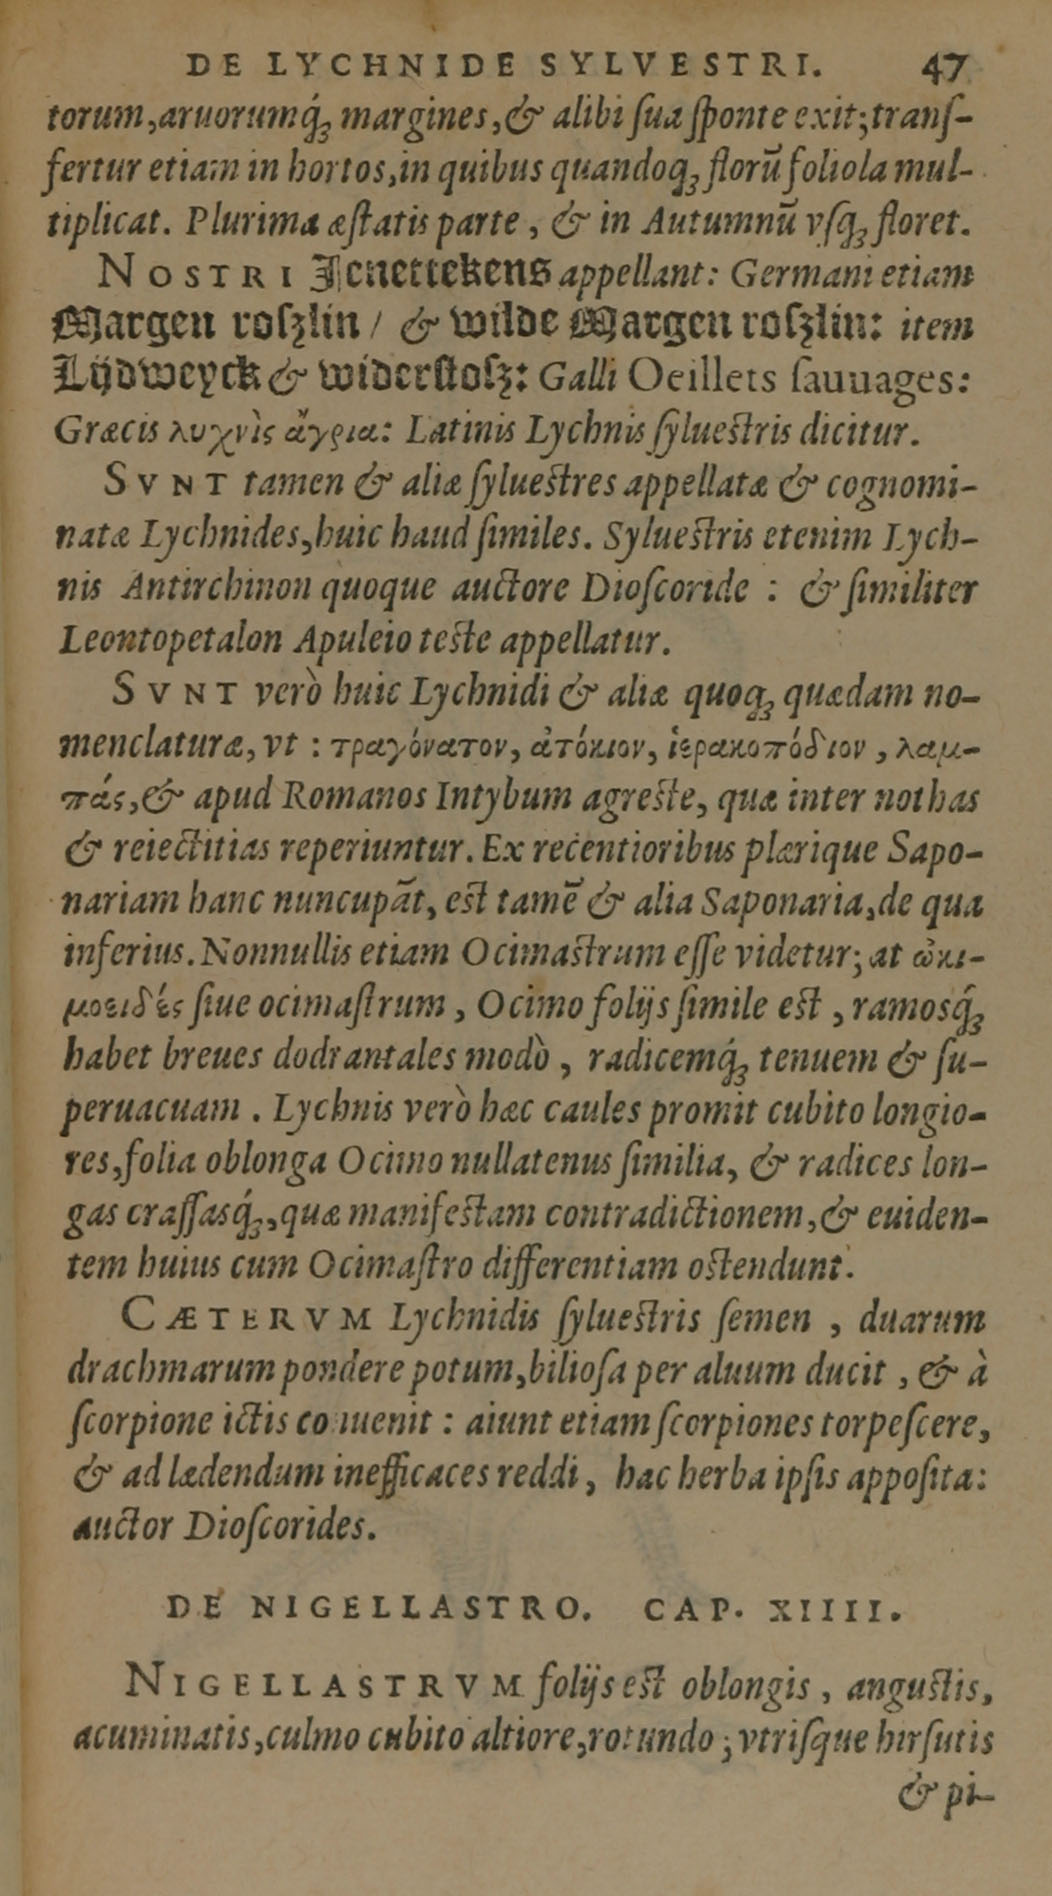 DE LYCHNIDE SYLVESTRI. 47
torum,aruorumq́ꝫ margines,& alibi ſua ſponte exit;tranſ-
fertur etiam in hortos,in quibus quandoqꝫ florū foliola mul-
tiplicat. Plurima æſtatis parte, & in Autumnū vſqꝫ floret.
NOSTRI Jenettekens appellant: Germani etiam
Margen roſzlin / & wilde Margen roſzlin: item
Lijdweyck & widerſtoſz: Galli Oeillets ſauuages:
Græcis λυχνὶς ἄγρια: Latinis Lychnis ſylueſtris dicitur.
SVNT tamen & aliæ ſylueſtres appellatæ & cognomi-
natæ Lychnides,huic haud ſimiles. Sylueſtris etenim Lych-
nis Antirrhinon quoque auctore Dioſcoride : & ſimiliter
Leontopetalon Apuleio teſte appellatur.
SVNT verò huic Lychnidi & aliæ quoqꝫ quædam no-
menclaturæ, vt : τραγόνατον, ἀτόκιον, ἱερακοπόδιον, λαμ-
πάς,& apud Romanos Intybum agreſte, quæ inter nothas
& reiectitias reperiuntur. Ex recentioribus plærique Sapo-
nariam hanc nuncupāt, eſt tamē & alia Saponaria,de qua
inferius. Nonnullis etiam Ocimaſtrum eſſe videtur; at ὠκι-
μοειδές ſiue ocimaſtrum, Ocimo folijs ſimile eſt, ramosq́ꝫ
habet breues dodrantales modò, radicemq́ꝫ tenuem & ſu-
peruacuam. Lychnis verò hæc caules promit cubito longio-
res,folia oblonga Ocimo nullatenus ſimilia, & radices lon-
gas craſſasq́ꝫ,quæ manifeſtam contradictionem,& euiden-
tem huius cum Ocimaſtro differentiam oſtendunt.
CÆTERVM Lychnidis ſylueſtris ſemen, duarum
drachmarum pondere potum,bilioſa per aluum ducit, & à
ſcorpione ictis conuenit : aiunt etiam ſcorpiones torpeſcere,
& ad lædendum inefficaces reddi, hac herba ipſis appoſita:
auctor Dioſcorides.
DE NIGELLASTRO. CAP. XIIII.
NIGELLASTRVM folijs eſt oblongis, anguſtis,
acuminatis,culmo cubito altiore,rotundo; vtriſque hirſutis
& pi-